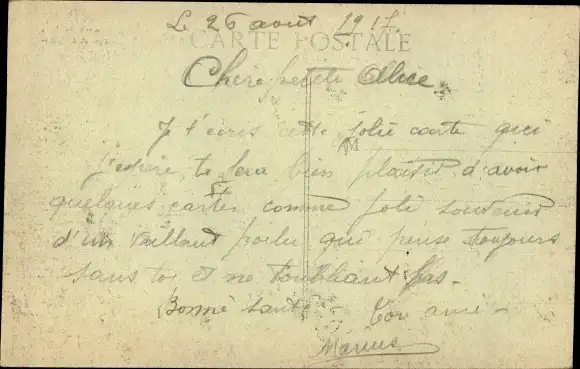 Le 26 aout 1917.
CARTE POSTALE
Chère petite Alice
Je t'écris cette jolie carte qui
M
j'espère te fera bien plaisir d'avoir
quelques cartes comme joli souvenir
d'un vaillant poilu qui pense toujours
sans toi et ne t'oubliant pas.
Bonne santé - Ton ami -
Marius